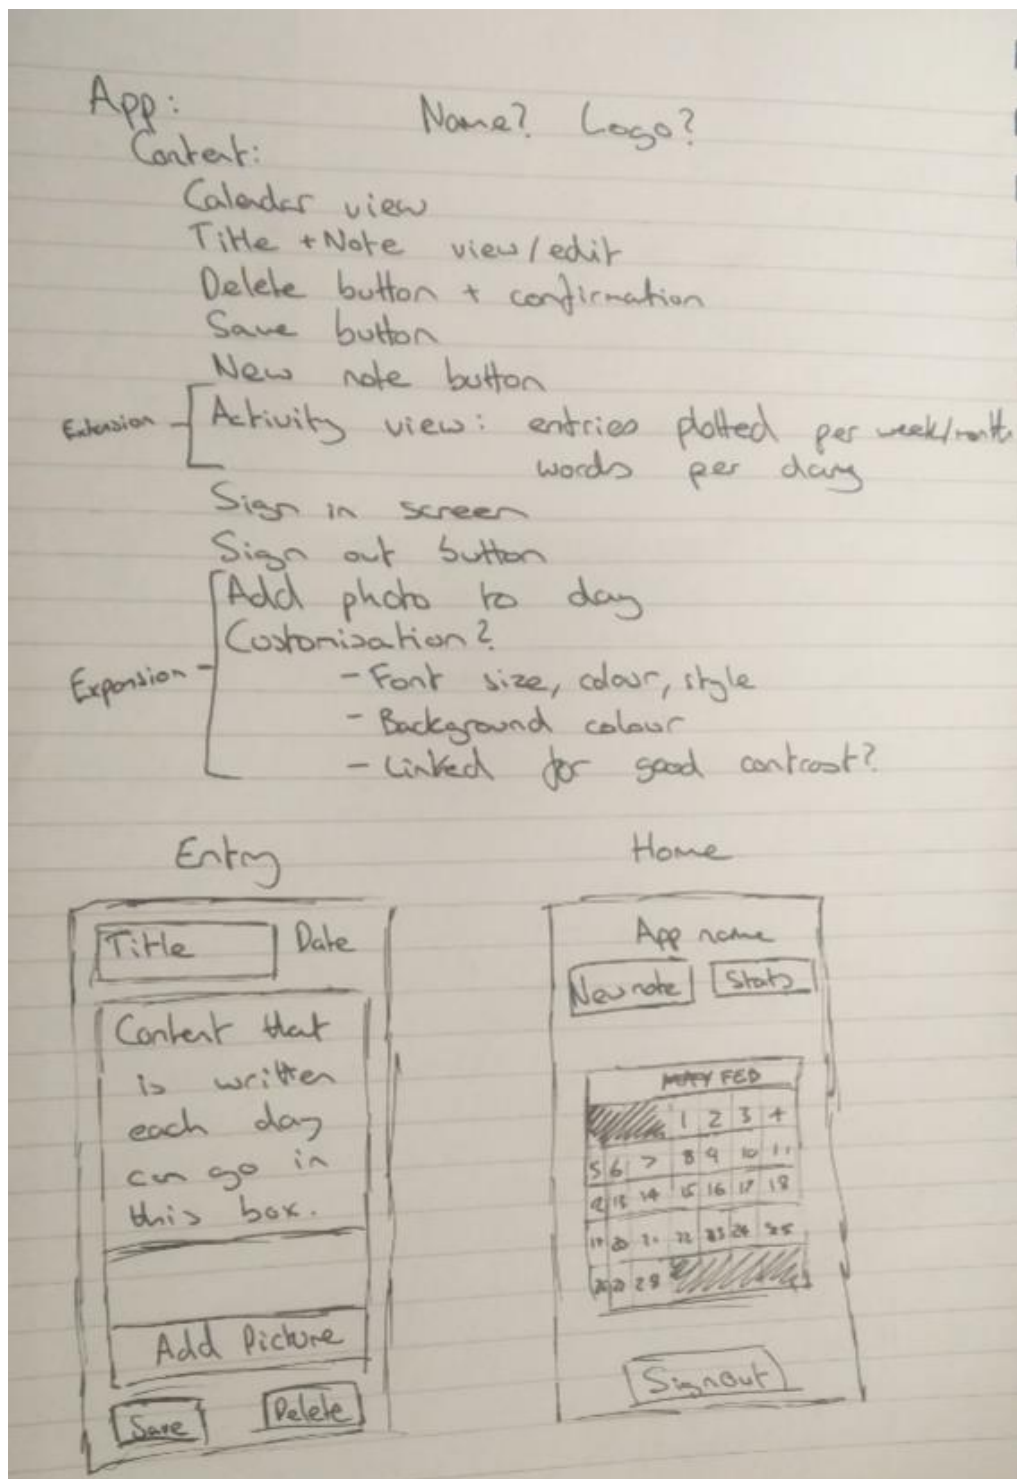 App: Name? Logo?
Content:
Calendar view
Title + Note view/edit
Delete button + confirmation
Save button
New note button
Extension Activity view: entries plotted per week/month
words per day
Sign in screen
Sign out button
Add photo to day
Customisation?
Expansion - Font size, colour, style
- Background colour
- Linked for good contrast?
Entry
Title Date
Content that
is written
each day
can go in
this box.
Add Picture
Save Delete
Home
App name
New note Stats
MAY FEB
1 2 3 4
5 6 7 8 9 10 11
12 13 14 15 16 17 18
19 20 21 22 23 24 25
26 27 28
Sign Out